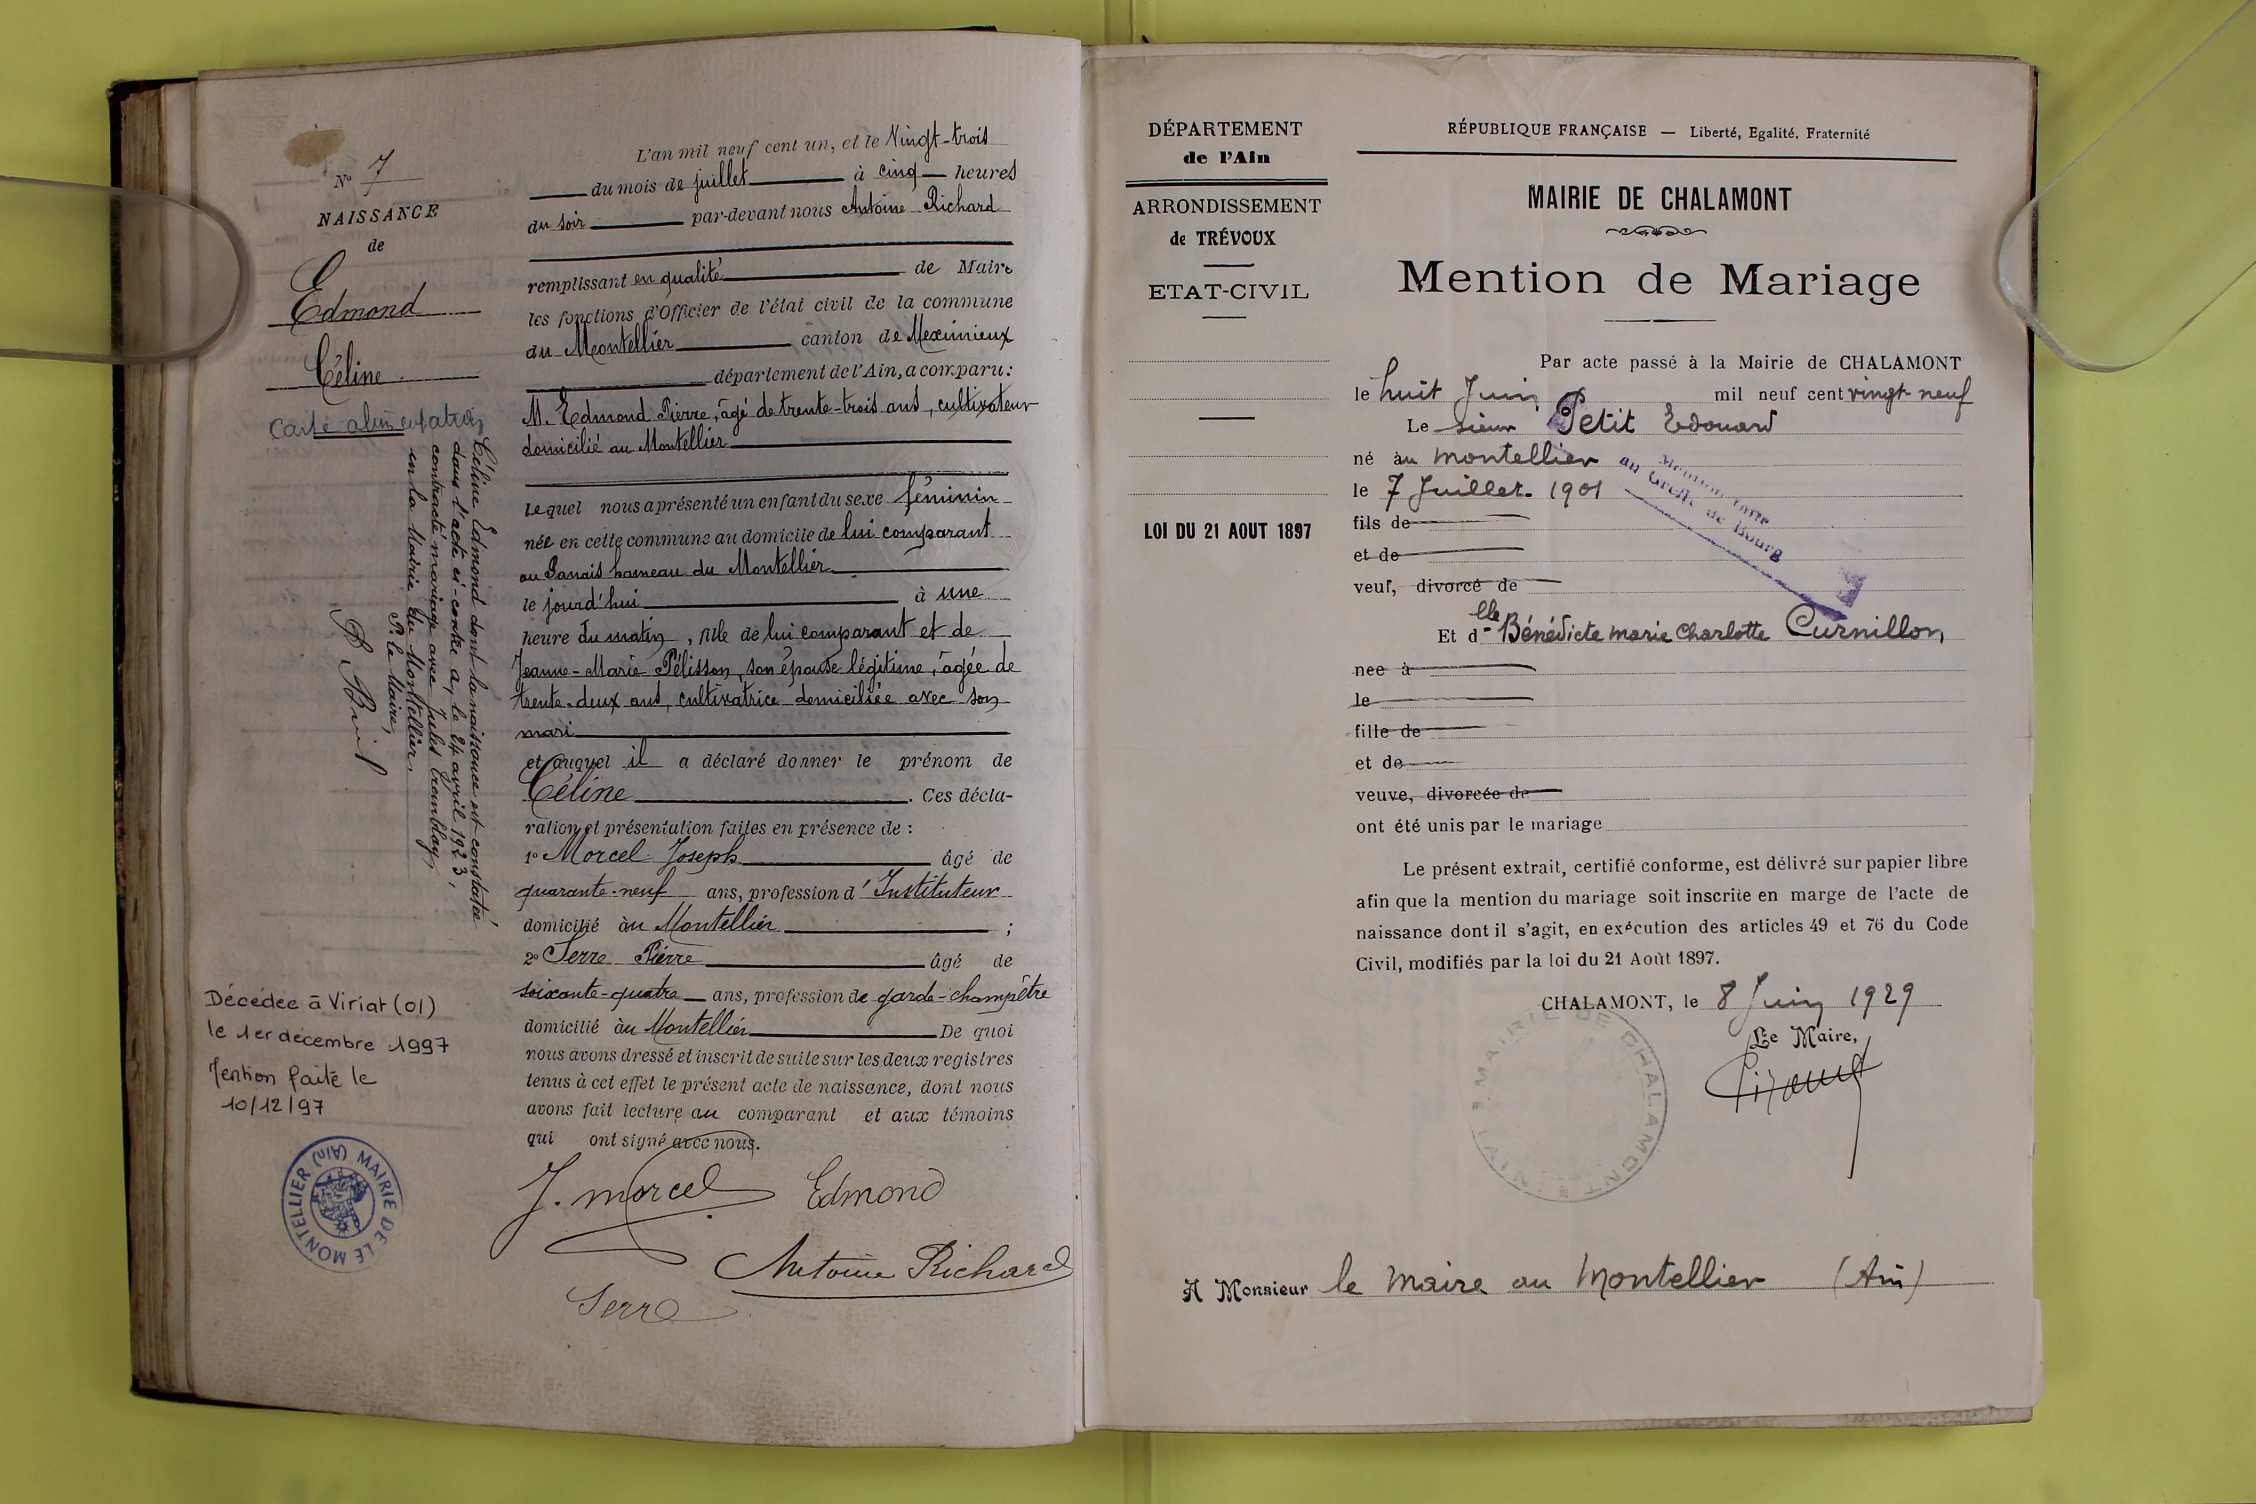 N° 7
NAISSANCE
de
Edmond
Céline
Carte alimentation
Céline Edmond dont la naissance est constatée
dans l'acte ci-contre a, le 24 avril 1923,
contracté mariage avec Jules Tremblay,
en la Mairie du Montellier.
P. le Maire,
L'an mil neuf cent un, et le Vingt-trois
du mois de juillet à cinq heures
du soir par-devant nous Antoine Richard
remplissant en qualité de Maire
les fonctions d'Officier de l'état civil de la commune
du Montellier canton de Meximieux
département de l'Ain, a comparu:
M. Edmond Pierre, âgé de trente-trois ans, cultivateur
domicilié au Montellier
Lequel nous a présenté un enfant du sexe féminin
née en cette commune au domicile de lui comparant
au Panais hameau du Montellier
le jourd'hui à une
heure du matin, fille de lui comparant et de
Jeanne-Marie Pélisson, son épouse légitime, âgée de
trente-deux ans, cultivatrice domiciliée avec son
mari
et auquel il a déclaré donner le prénom de
Céline. Ces décla-
ration et présentation faites en présence de :
1° Morcel Joseph âgé de
quarante-neuf ans, profession d'Instituteur
domicilié àu Montellier ;
2° Serre Pierre âgé de
soixante-quatre ans, profession de garde-champêtre
domicilié àu Montellier De quoi
nous avons dressé et inscrit de suite sur les deux registres
tenus à cet effet le présent acte de naissance, dont nous
avons fait lecture au comparant et aux témoins
qui ont signé avec nous.
J. Morcel Edmond
Antoine Richard
Serre
Décédée à Viriat (01)
le 1er décembre 1997
Mention faite le
10/12/97
MAIRIE DE LE MONTELLIER (Ain)
DÉPARTEMENT
de l'Ain
ARRONDISSEMENT
de TRÉVOUX
ETAT-CIVIL
LOI DU 21 AOUT 1897
RÉPUBLIQUE FRANÇAISE — Liberté, Egalité, Fraternité
MAIRIE DE CHALAMONT
Mention de Mariage
Par acte passé à la Mairie de CHALAMONT
le huit Juin mil neuf cent vingt-neuf
Le sieur Petit Edouard
né àu Montellier
le 7 Juillet 1901
Mention faite
au Greffe de Bourg
fils de
et de
veuf, divorcé de
Et dlle Bénédicte Marie Charlotte Curnillon
née à
le
fille de
et de
veuve, divorcée de
ont été unis par le mariage
Le présent extrait, certifié conforme, est délivré sur papier libre
afin que la mention du mariage soit inscrite en marge de l'acte de
naissance dont il s'agit, en exécution des articles 49 et 76 du Code
Civil, modifiés par la loi du 21 Août 1897.
CHALAMONT, le 8 Juin 1929
Le Maire,
MAIRIE DE CHALAMONT (AIN)
A Monsieur le Maire au Montellier (Ain)